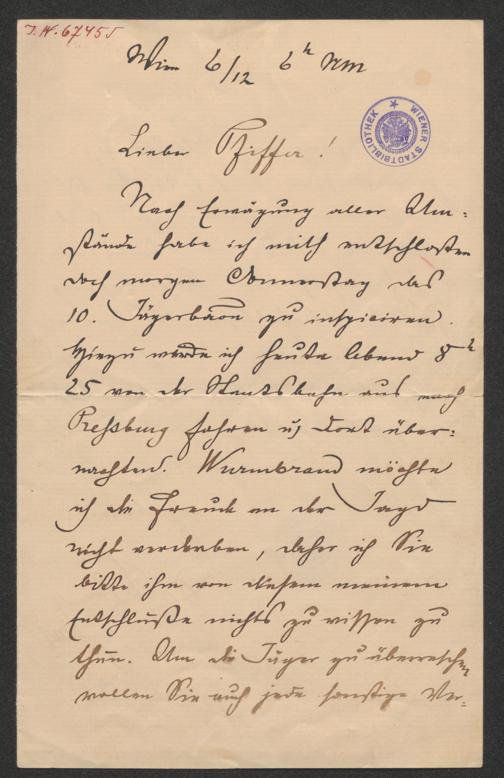 I. N. 67455
Wien 6/12 6h NM
WIENER STADTBIBLIOTHEK
Lieber Pfiffer!
Nach Erwägung aller Um-
stände habe ich mich entschlossen
doch morgen Donnerstag das
10. Jägerbaon zu inspiciren.
Hiezu werde ich heute Abend 8h
25 von der Staatsbahn aus nach
Preßburg fahren u. dort über-
nachten. Wurmbrand möchte
ich die Freude an der Jagd
nicht verderben, daher ich Sie
bitte ihm von diesem meinem
Entschluße nichts zu wissen zu
thun. Um die Jäger zu überraschen
wollen Sie auch jede sonstige Ver-